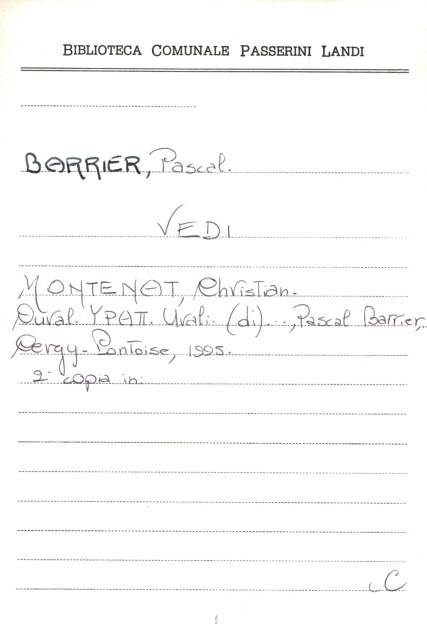 BIBLIOTECA COMUNALE PASSERINI LANDI
BARRIER, Pascal.
VEDI
MONTENAT, Christian.
Duval. УРАЛ. Urali. (di)...,Pascal Barrier,
Cergy-Pontoise, 1995.
2ª copia in:
C